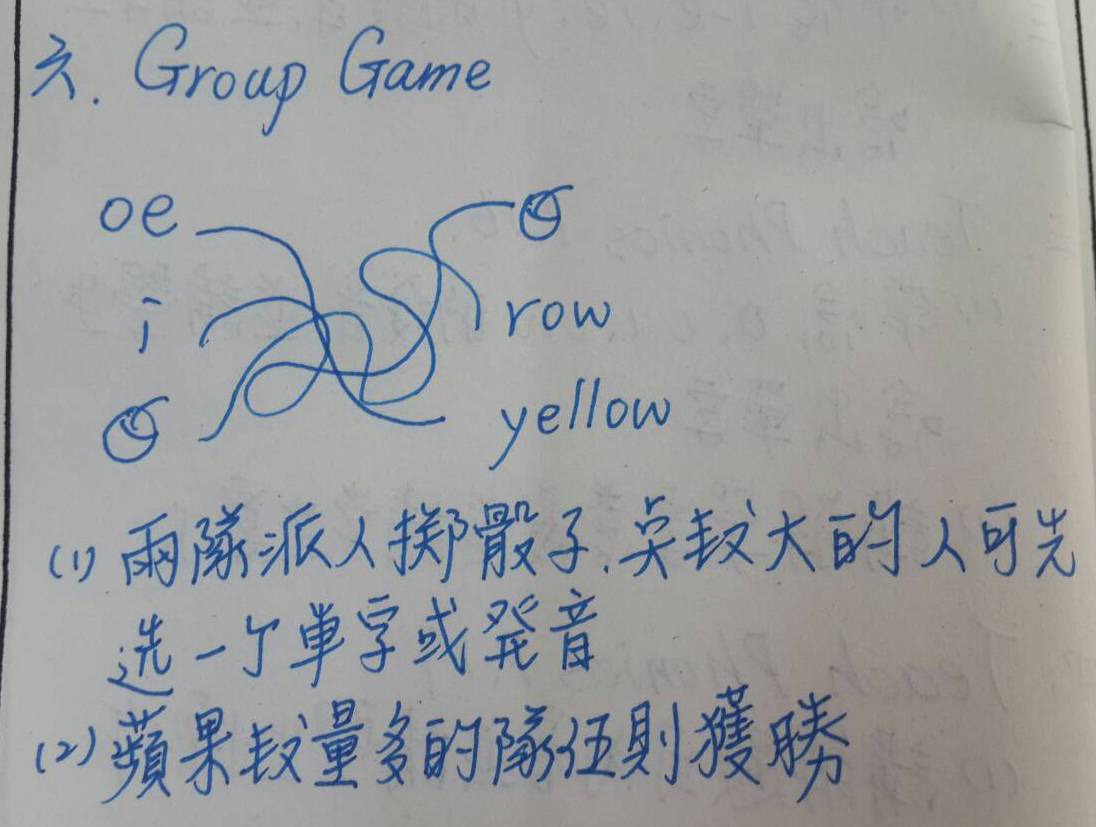 六. Group Game
oe
i row
yellow
(1) 兩隊派人擲骰子.点数大的人可先
选一个单字或発音
(2) 蘋果数量多的隊伍則獲勝